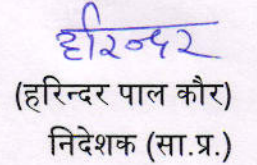 हरिन्दर
(हरिन्दर पाल कौर)
निदेशक (सा.प्र.)